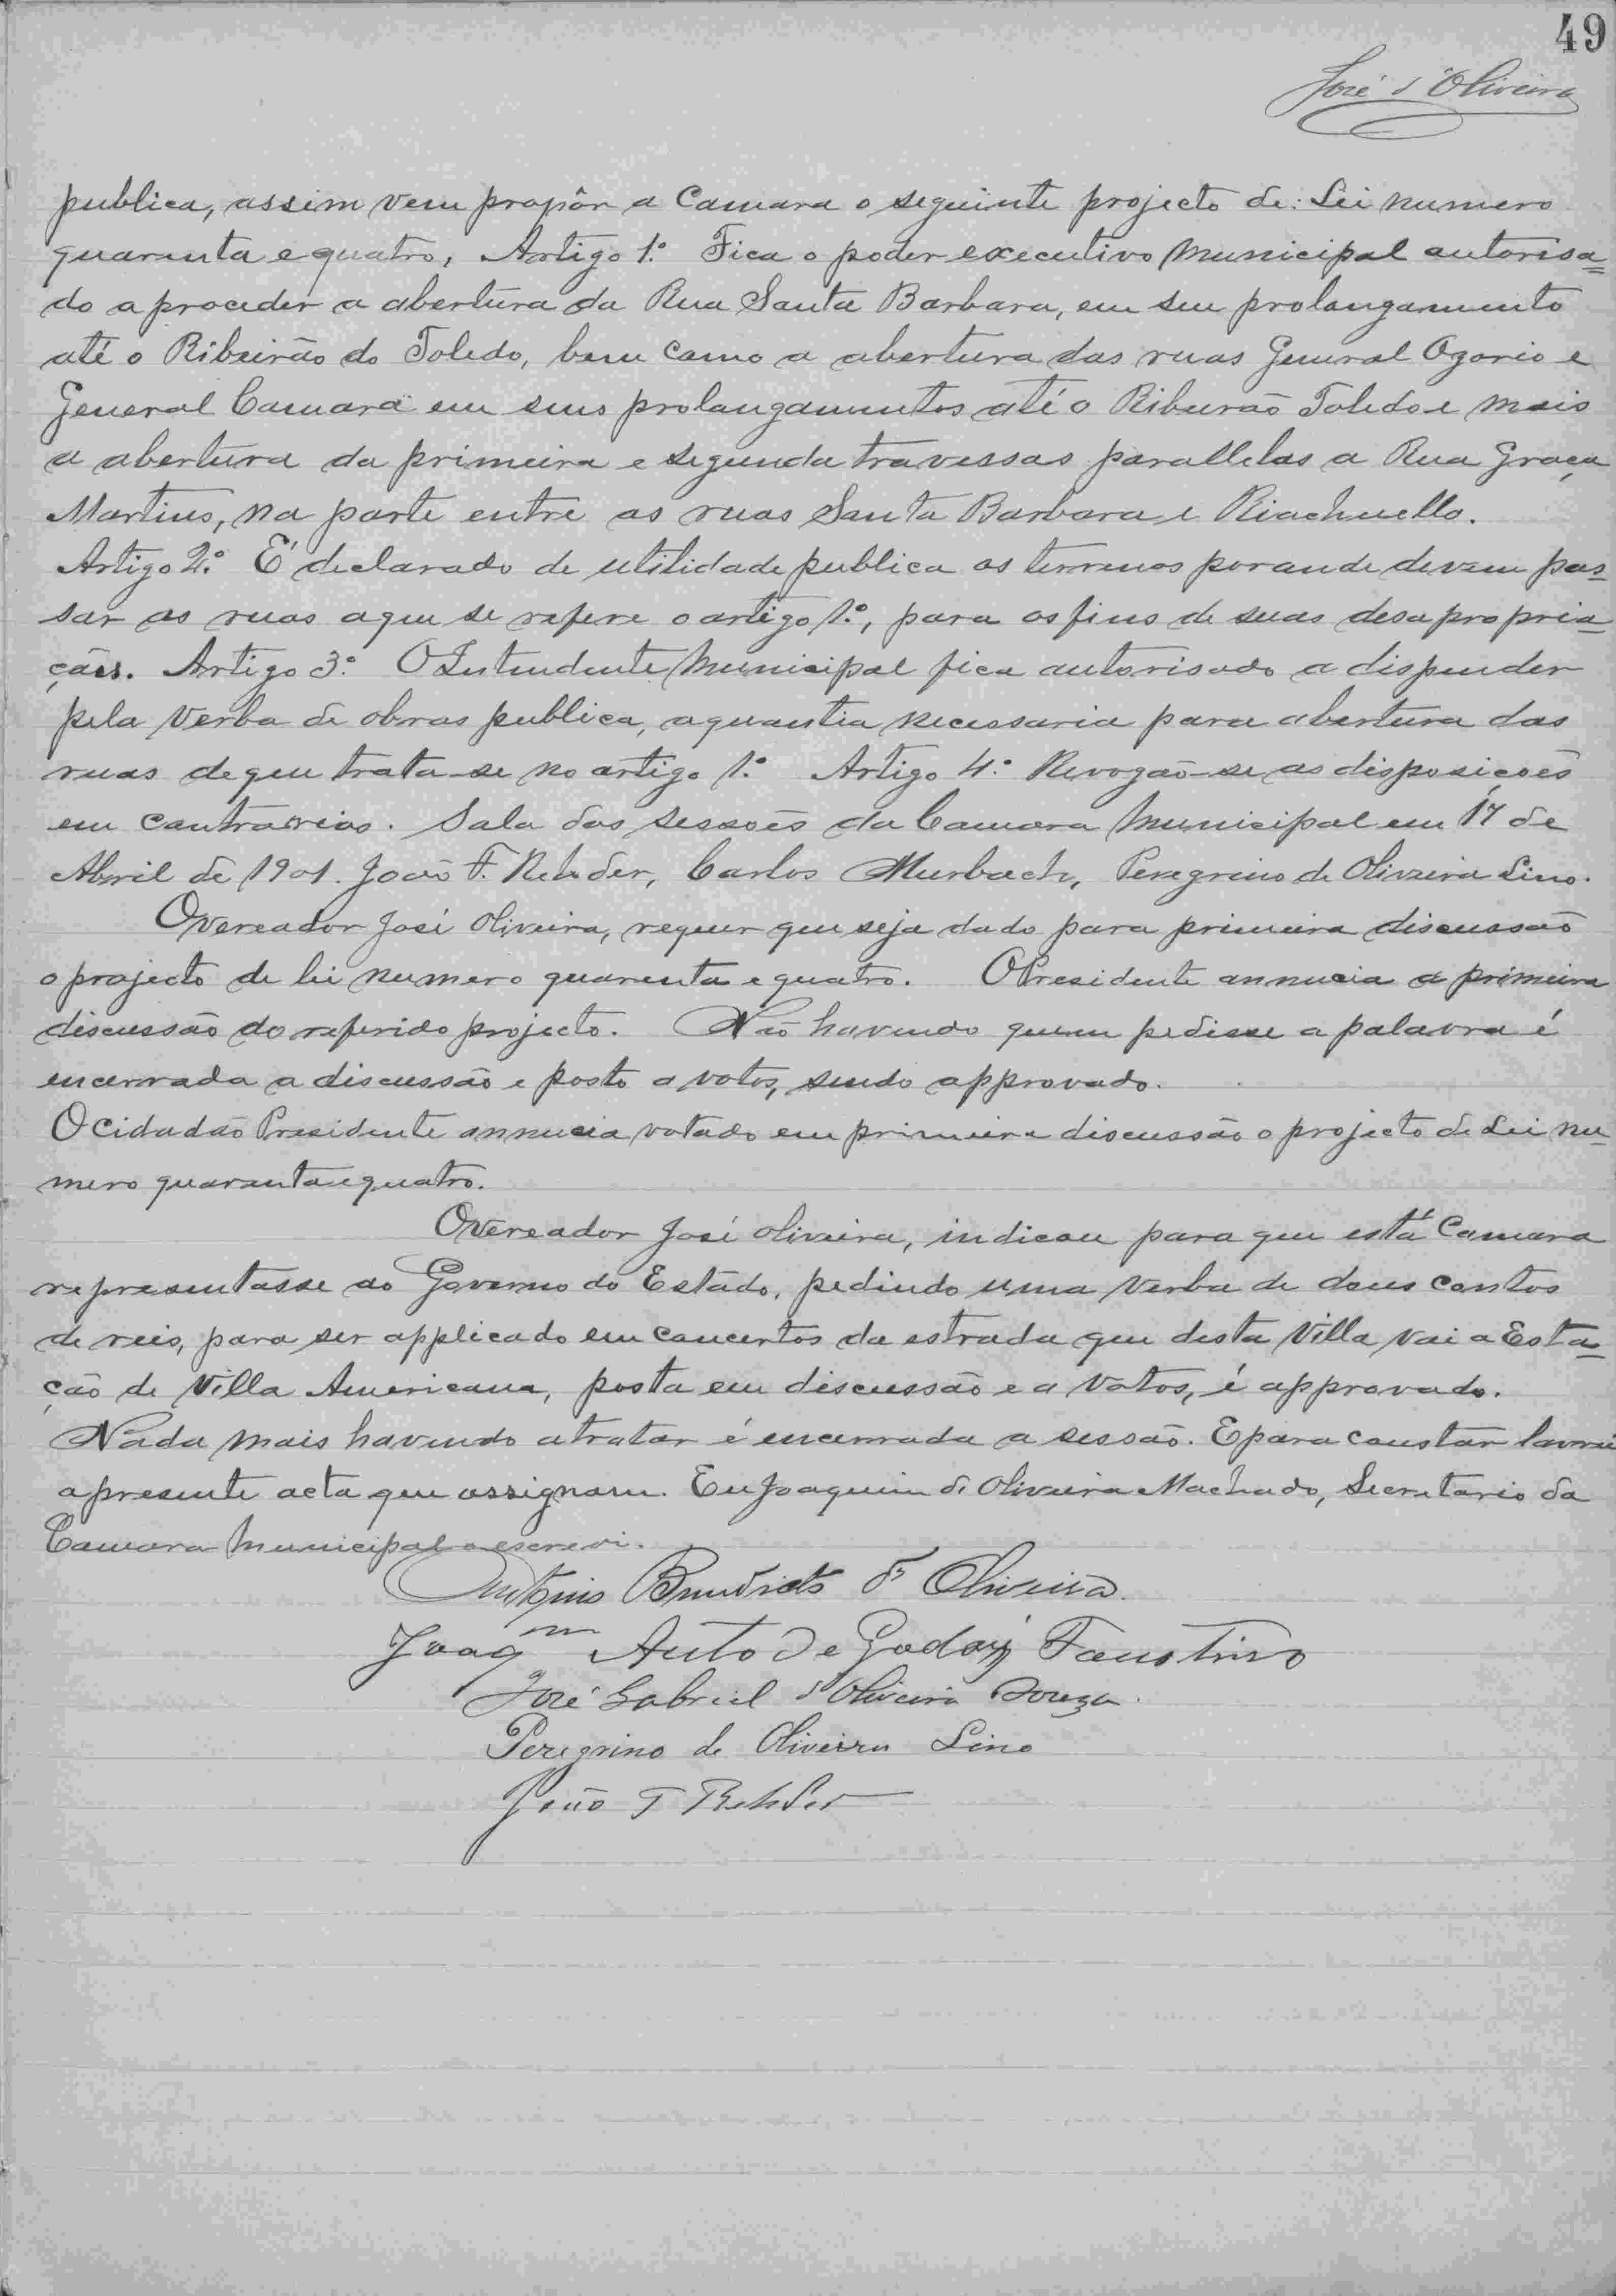 49
José d'Oliveira
publica, assim vem propôr a Camara o seguinte projecto de: Lei numero
quarenta e quatro, Artigo 1.º Fica o poder executivo Municipal autorisa=
do a proceder a abertura da Rua Santa Barbara, em seu prolongamento
até o Ribeirão do Toledo, bem como a abertura das ruas General Ozorio e
General Camara em seus prolongamentos até o Ribeirão Toledo e mais
a abertura da primeira e segunda travessas parallelas a Rua Graça
Martins, na parte entre as ruas Santa Barbara e Riachuello.
Artigo 2.º É declarado de utilidade publica os terrenos por onde devem pas=
sar as ruas a que se refere o artigo 1.º, para os fins de suas desapropria=
ções. Artigo 3.º O Intendente Municipal fica autorisado a dispender
pela verba de obras publica, a quantia necessaria para abertura das
ruas de que trata-se no artigo 1.º Artigo 4.º Revogão-se as disposições
em contrarios. Sala das Sessões da Camara Municipal em 17 de
Abril de 1901. João F. Rehder, Carlos Murbach, Peregrino de Oliveira Lino.
O vereador José Oliveira, requer que seja dado para primeira discussão
o projecto de lei numero quarenta e quatro. O Presidente annucia a primeira
discussão do referido projecto. Não havendo quem pedisse a palavra é
encerrada a discussão e posto a votos, sendo approvado.
O cidadão Presidente annucia votado em primeira discussão o projecto de Lei nu=
mero quarenta e quatro.
O vereador José Oliveira, indicou para que está Camara
representasse ao Governo do Estado, pedindo uma verba de dous contos
de reis, para ser applicado em concertos da estrada que desta Villa vai a Esta=
ção de Villa Americana, posta em discussão e a votos, é approvado.
Nada mais havendo a tratar é encerrada a sessão. E para constar lavrei
a presente acta que assignam. Eu Joaquim de Oliveira Machado, Secretario da
Camara Municipal o escrevi.
Antonio Benedicto d' Oliveira.
Joaqm Anto de Godoy Faustino
José Gabriel d'Oliveira Souza.
Peregrino de Oliveira Lino
João F Rehder